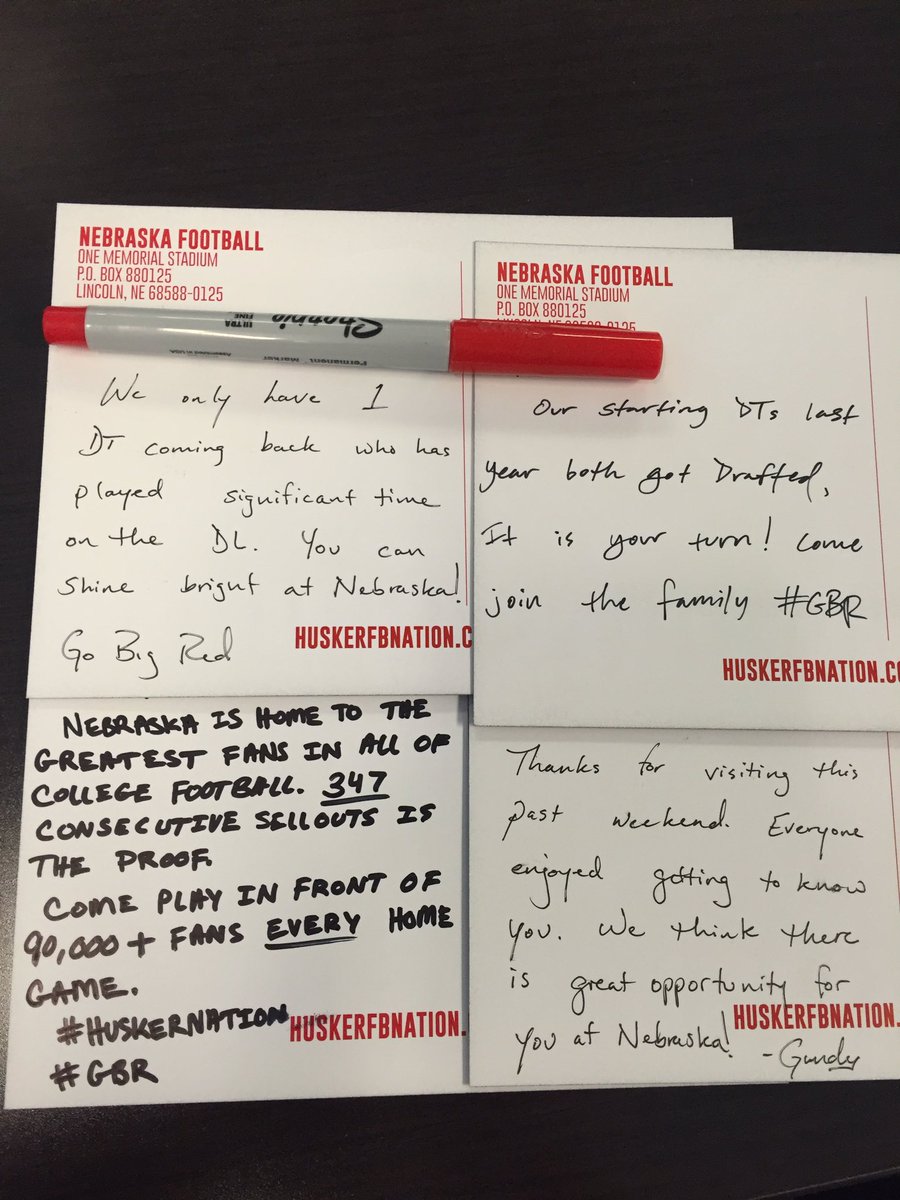 NEBRASKA FOOTBALL
ONE MEMORIAL STADIUM
P.O. BOX 880125
LINCOLN, NE 68588-0125
Sharpie
ULTRA
FINE
Permanent Marker
Assembled in USA
We only have 1
DT coming back who has
played significant time
on the DL. You can
shine bright at Nebraska!
Go Big Red
HUSKERFBNATION.C
NEBRASKA FOOTBALL
ONE MEMORIAL STADIUM
P.O. BOX 880125
LINCOLN, NE 68588-0125
Our starting DTs last
year both got Drafted,
It is your turn! Come
join the family #GBR
HUSKERFBNATION.CO
NEBRASKA IS HOME TO THE
GREATEST FANS IN ALL OF
COLLEGE FOOTBALL. 347
CONSECUTIVE SELLOUTS IS
THE PROOF.
COME PLAY IN FRONT OF
90,000+ FANS EVERY HOME
GAME.
#HUSKERNATION
#GBR
HUSKERFBNATION.
Thanks for visiting this
past weekend. Everyone
enjoyed getting to know
you. We think there
is great opportunity for
you at Nebraska!
-Gundy
HUSKERFBNATION.